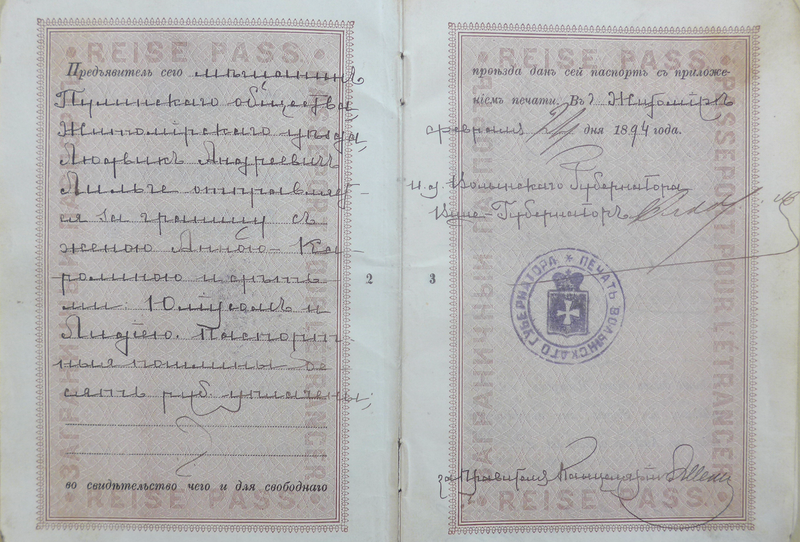 REISE PASS.
Предъявитель сего мѣщанинъ
Пулинскаго общества,
Житомірскаго уѣзда,
Людвикъ Андреевичъ
Лильге отправляет-
ся за границу съ
женою Анною-Ка-
ролиною и дѣть-
ми: Юліусомъ и
Лидіею. Паспорт-
ныя пошлины де-
сять руб. уплачены,
во свидѣтельство чего и для свободнаго
REISE PASS.
ЗАГРАНИЧНЫЙ
PASSEPORT POUR L'ÉTRANGER
2
REISE PASS.
проѣзда данъ сей паспортъ съ приложе-
ніемъ печати. Въ г. Житомірѣ
февраля дня 1894 года.
и. д. Волынскаго Губернатора
Вице-Губернаторъ
3
ПЕЧАТЬ ВОЛЫНСКАГО ГУБЕРНАТОРА
за Правителя Канцеляріи
REISE PASS.
ЗАГРАНИЧНЫЙ
PASSEPORT POUR L'ÉTRANGER